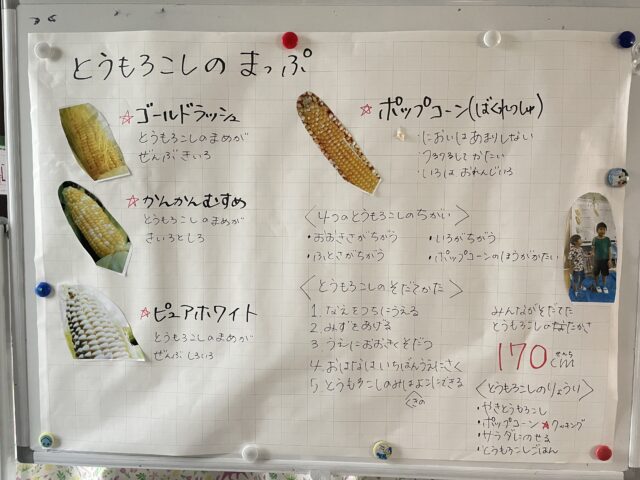 とうもろこしの まっぷ
☆ゴールドラッシュ
とうもろこしのまめが
ぜんぶきいろ
☆かんかんむすめ
とうもろこしのまめが
きいろとしろ
☆ピュアホワイト
とうもろこしのまめが
ぜんぶしろいろ
☆ポップコーン(ばくれつしゅ)
・においはあまりしない
・つるつるしてかたい
・いろはおれんじいろ
〈4つのとうもろこしのちがい〉
・おおきさがちがう ・いろがちがう
・ふとさがちがう ・ポップコーンのほうがかたい
〈とうもろこしのそだてかた〉
1. なえをつちにうえる
2. みずをあげる
3. うえにおおきくそだつ
4. おはなはいちばんうえにさく
5. とうもろこしのみはよこにできる
くきの
みんながそだてた
とうもろこしの
170cm
せんち
〈とうもろこしのりょうり〉
・やきとうもろこし
・ポップコーン★クッキング
・サラダにのせる
・とうもろこしごはん